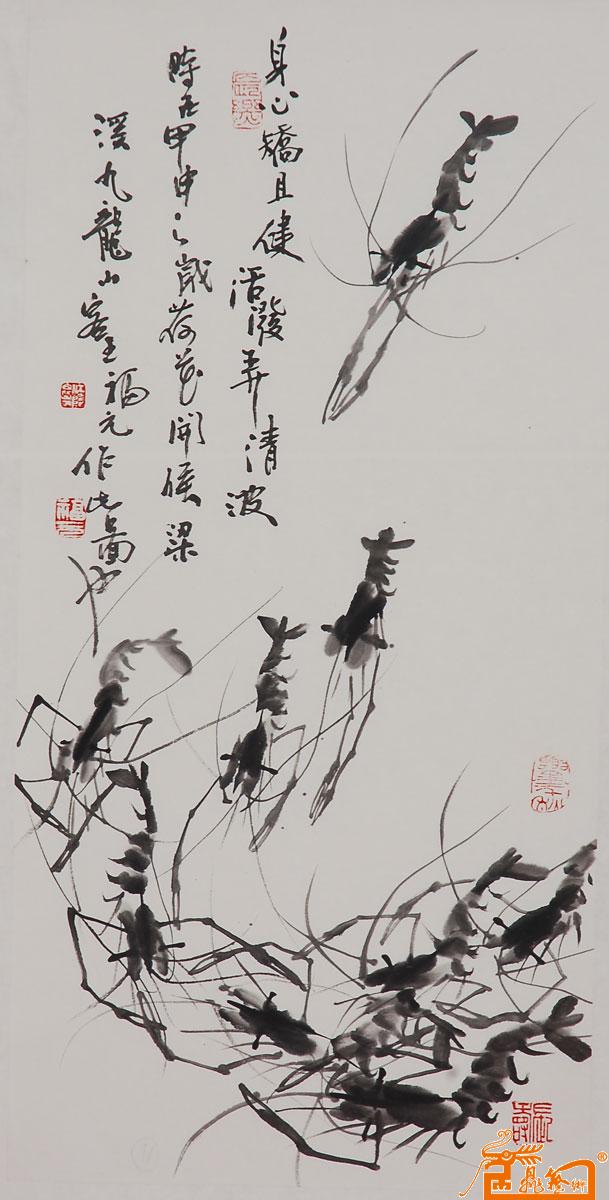 身心矯且健活潑弄清波
時在甲申之歲荷花開候梁
溪九龍山客王福元作此圖也
鼎藝術